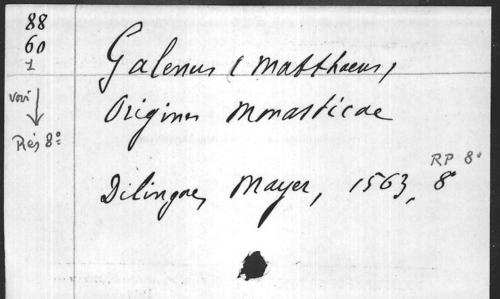 88
60
1
voir
Rés 8º
Galenus (Matthaeus)
Origines Monasticae
RP 8º
Dilingae, Mayer, 1563, 8º